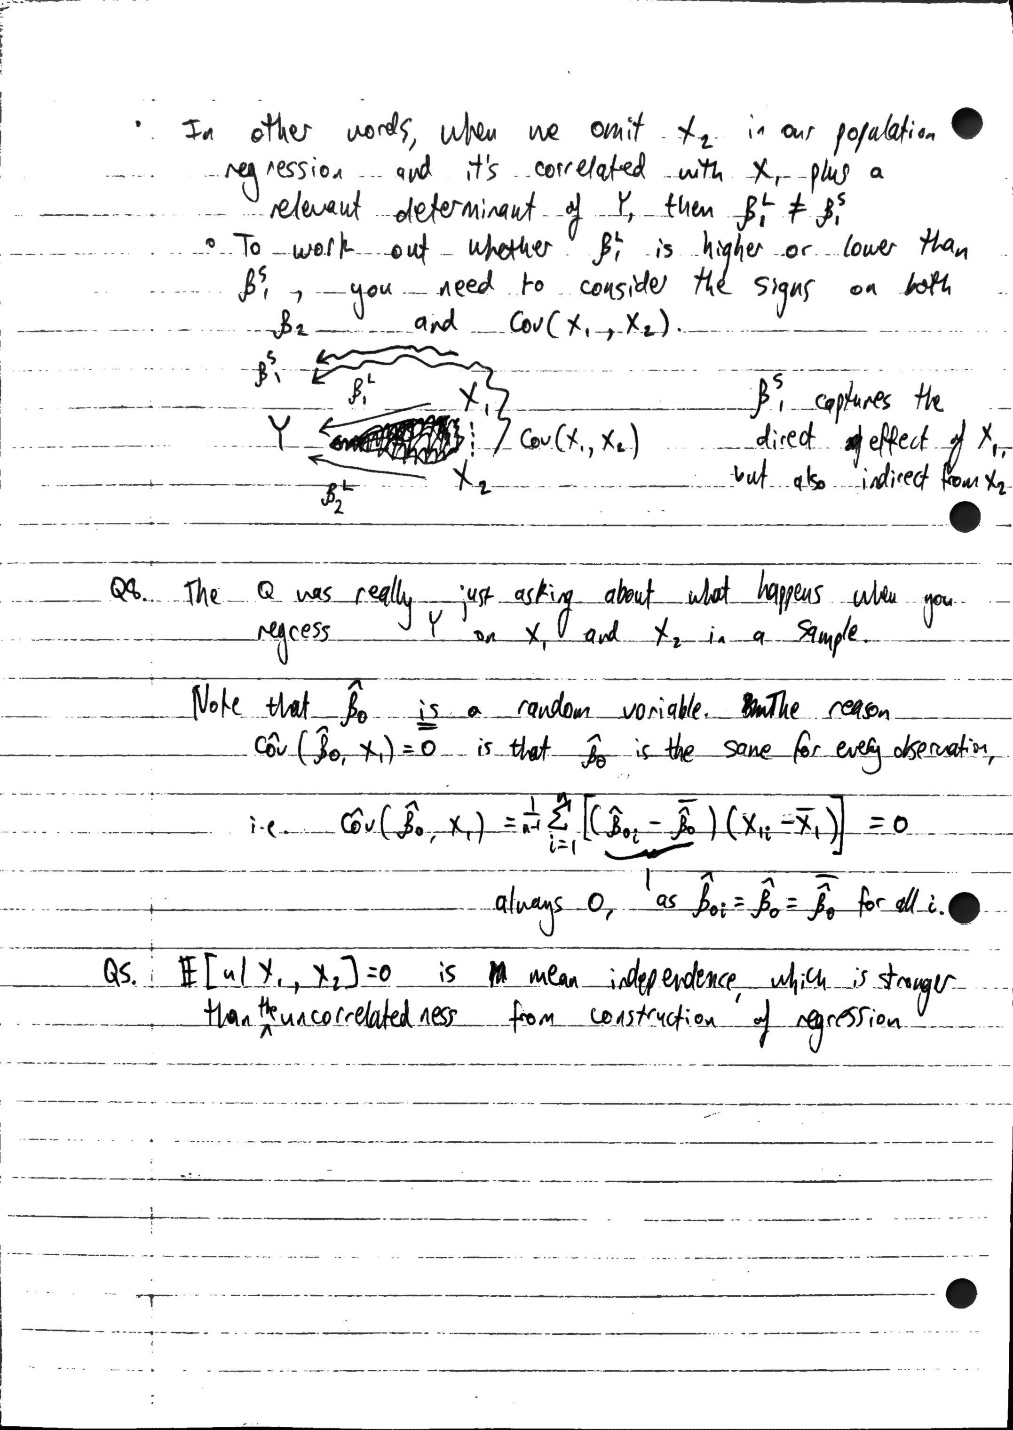 • In other words, when we omit X₂ in our population
regression and it's correlated with X₁ plus a
relevant determinant of Y, then β₁ᴸ ≠ β₁ˢ
∘ To work out whether β₁ᴸ is higher or lower than
β₁ˢ, you need to consider the signs on both
β₂ and Cov(X₁, X₂).
β₁ˢ
β₁ᴸ X₁
Y Cov(X₁, X₂)
X₂
β₂ᴸ
β₁ˢ captures the
direct effect of X₁,
but also indirect from X₂
Q8. The Q was really just asking about what happens when you
regress Y on X₁ and X₂ in a sample.
Note that β̂₀ is a random variable. The reason
Côv(β̂₀, X₁) = 0 is that β̂₀ is the same for every observation,
i.e. Côv(β̂₀, X₁) = 1/(n-1) Σᵢ₌₁ⁿ [(β̂₀ᵢ - β̂̄₀)(X₁ᵢ - X̄₁)] = 0
always 0, as β̂₀ᵢ = β̂₀ = β̂̄₀ for all i.
Q5. 𝔼[u|X₁, X₂]=0 is mean independence, which is stronger
than the uncorrelatedness from construction of regression